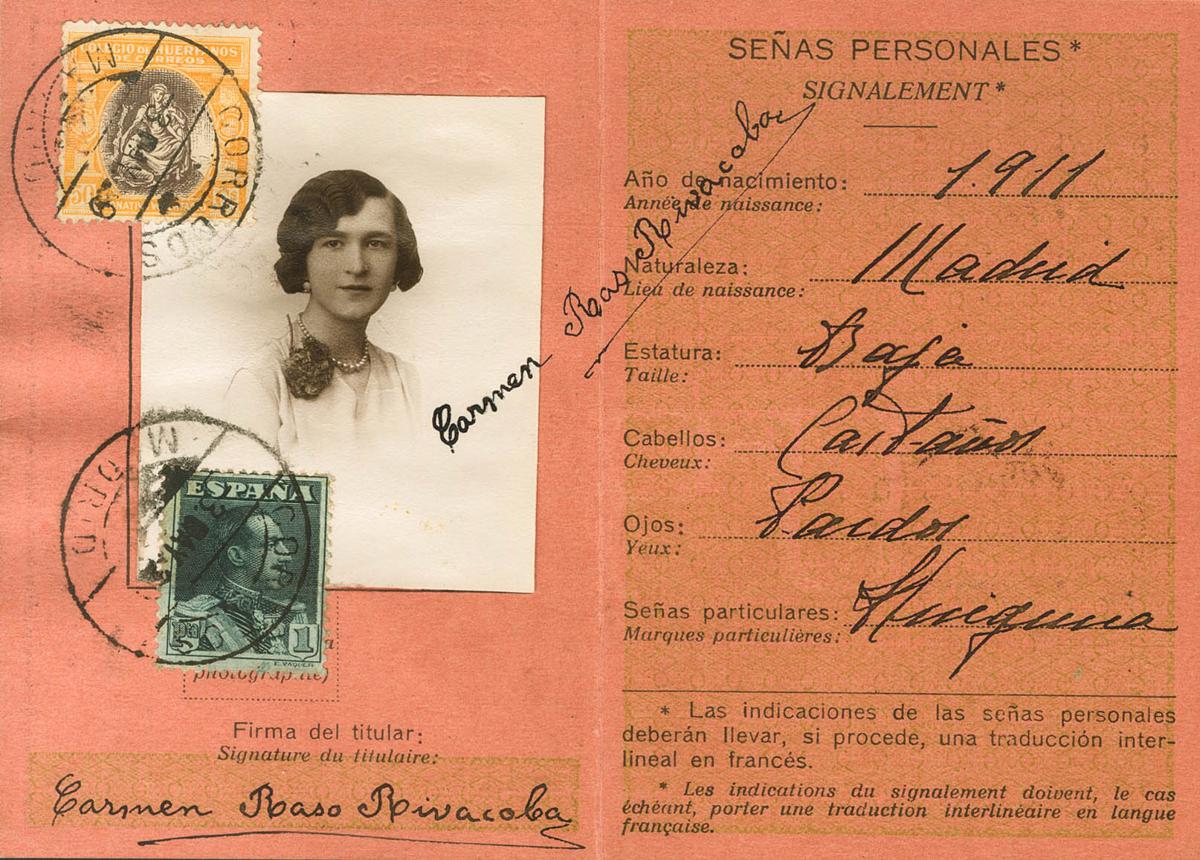 COLEGIO DE HUERFANOS
DE CORREOS
50
CORREOS
Carmen Raso Rivacoba
MADRID
ESPAÑA
1
E. VAQUER
photographie)
Firma del titular:
Signature du titulaire:
Carmen Raso Rivacoba
SEÑAS PERSONALES *
SIGNALEMENT *
Año de nacimiento: 1.911
Année de naissance:
Naturaleza: Madrid
Lieu de naissance:
Estatura: Baja
Taille:
Cabellos: Castaños
Cheveux:
Ojos: Pardos
Yeux:
Señas particulares: Ninguna
Marques particulières:
* Las indicaciones de las señas personales
deberán llevar, si procede, una traducción inter-
lineal en francés.
* Les indications du signalement doivent, le cas
échéant, porter une traduction interlinéaire en langue
française.